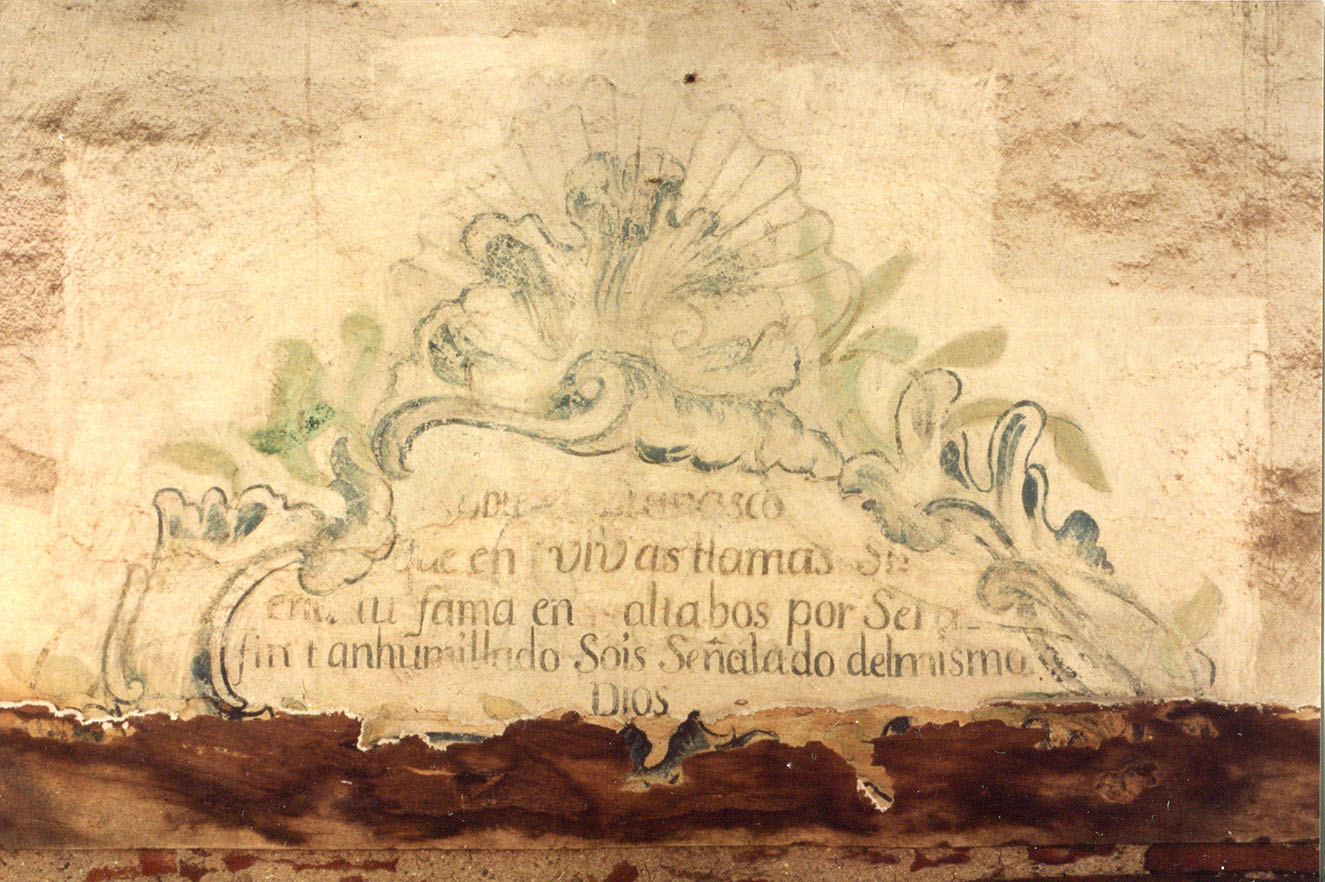 que en vivas llamas
fama en altabos por Sera
fin tan humillado Sois Señalado del mismo
Dios